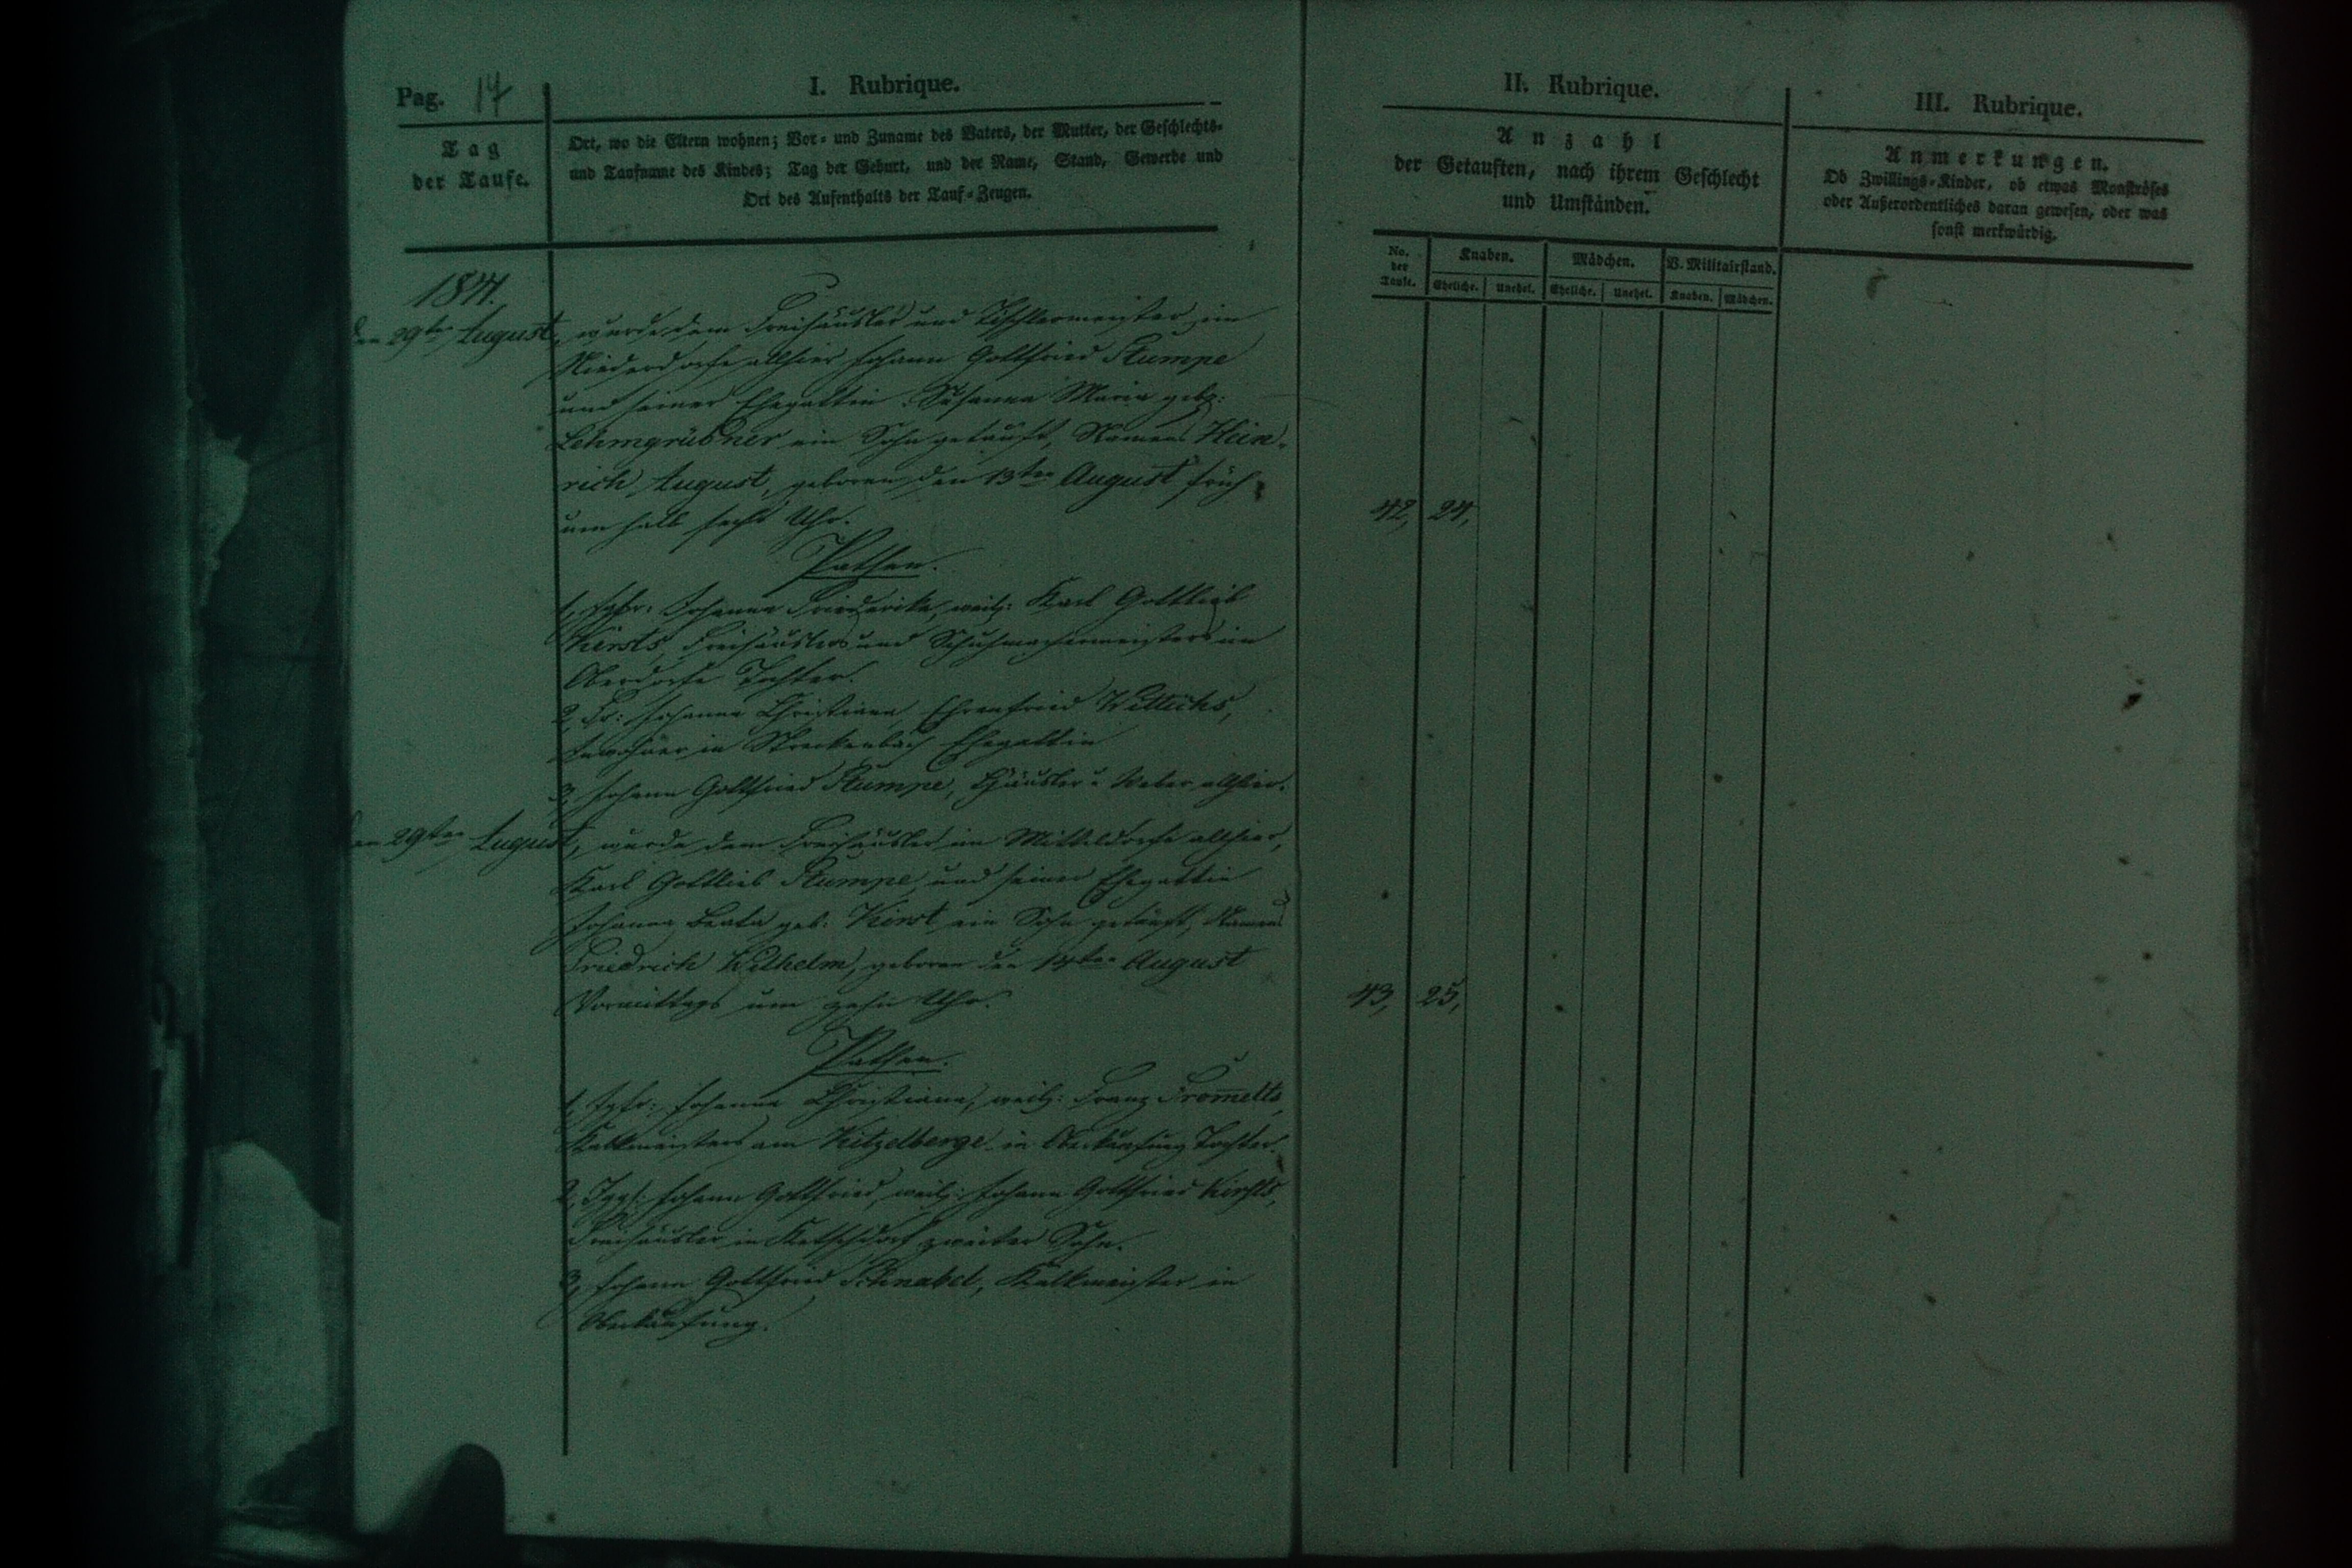 Pag. 14
I. Rubrique.
Tag
der Taufe.
Ort, wo die Eltern wohnen; Vor- und Zuname des Vaters, der Mutter, der Geschlechts-
und Taufname des Kindes; Tag der Geburt, und der Name, Stand, Gewerbe und
Ort des Aufenthalts der Tauf-Zeugen.
1841.
den 29ten August, wurde dem Freihäusler und Tischlermeister im
Niederdorfe allhier Johann Gottfried Stumpe
und seiner Ehegattin Susanna Maria geb:
Lehmgrübner ein Sohn getauft, Namens Hein-
rich August, geboren den 13ten August früh
um halb sechs Uhr.
Pathen.
1, Jgfr: Johanne Friederike, weil: Karl Gottlieb
Kirsts, Freihäuslers und Schuhmachermeisters im
Oberdorfe Tochter.
2, Fr: Johanne Christiane, Ehrenfried Wittichs,
in Streckenbach Ehegattin
3, Johann Gottfried Stumpe, Häusler u. Weber allhier.
den 29ten August, wurde dem Freihäusler im Mitteldorfe allhier,
Karl Gottlieb Stumpe, und seiner Ehegattin
Johanne Beate geb: Kirst ein Sohn getauft, Namens
Friedrich Wilhelm, geboren den 14ten August
Vormittags um zehn Uhr.
Pathen.
1, Jgfr: Johanne Christiane, weil: Franz From̅elts,
Kalkmeisters am Kitzelberge in Oberkaufung Tochter.
2, Jggs: Johann Gottfried, weil: Johann Gottfried Kirsts,
Freihäusler in Ketschdorf zweiter Sohn.
3, Johann Gottfried Schnabel, Kalkmeister in
Oberkaufung.
II. Rubrique.
Anzahl
der Getauften, nach ihrem Geschlecht
und Umständen.
No. der Taufe.
Knaben.
Mädchen.
V. Militairstand.
Eheliche. Unehel. Eheliche. Unehel. Knaben. Mädchen.
42, 24,
43, 25,
III. Rubrique.
Anmerkungen.
Ob Zwillings-Kinder, ob etwas Monströses
oder Außerordentliches daran gewesen, oder was
sonst merkwürdig.